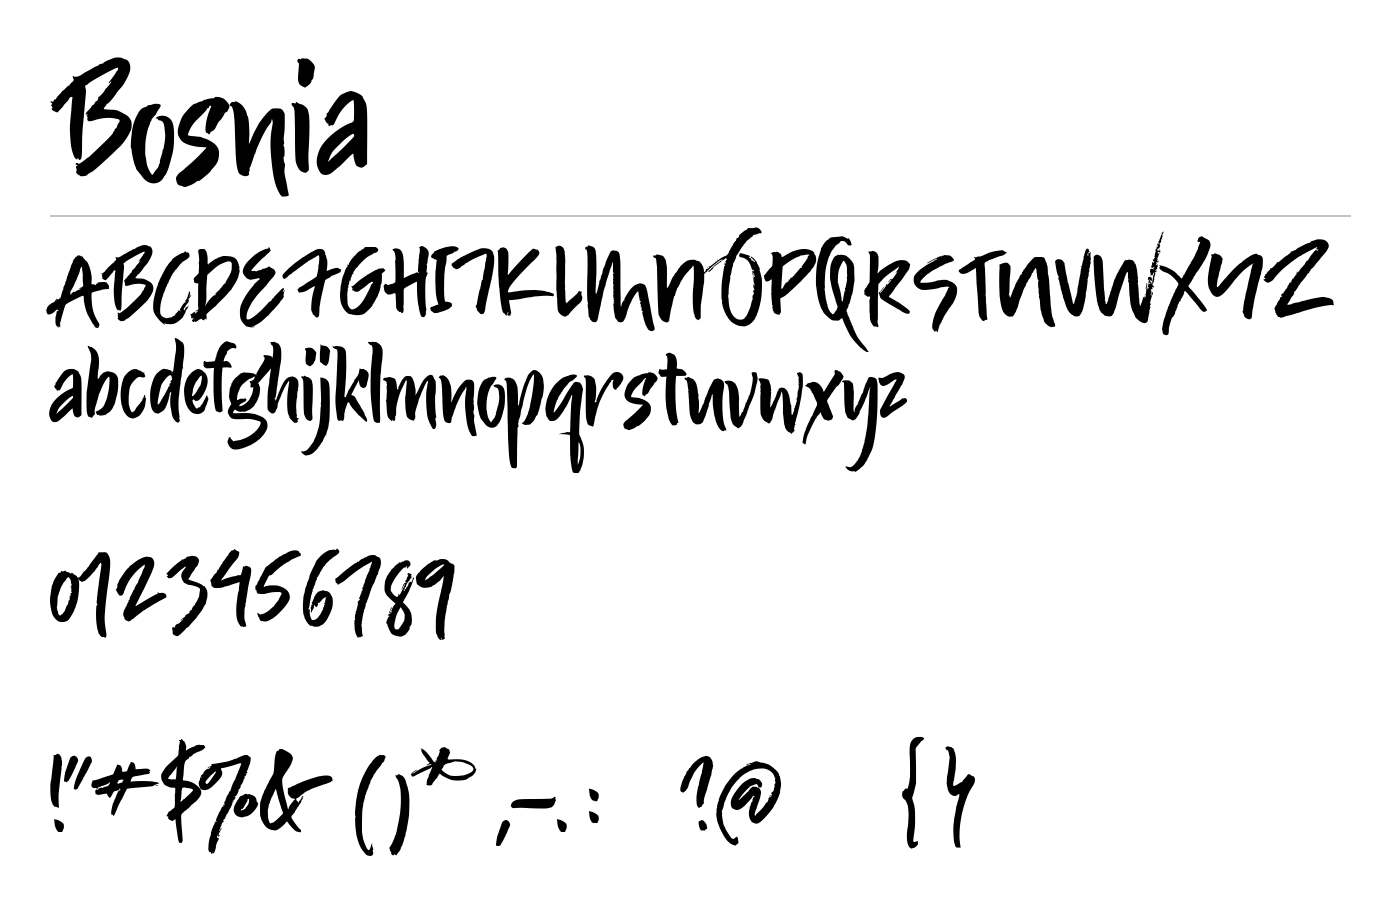 Bosnia
ABCDEFGHIJKLMNOPQRSTUVWXYZ
abcdefghijklmnopqrstuvwxyz
0123456789
!"#$%& ()* ,-. : ?@ { }